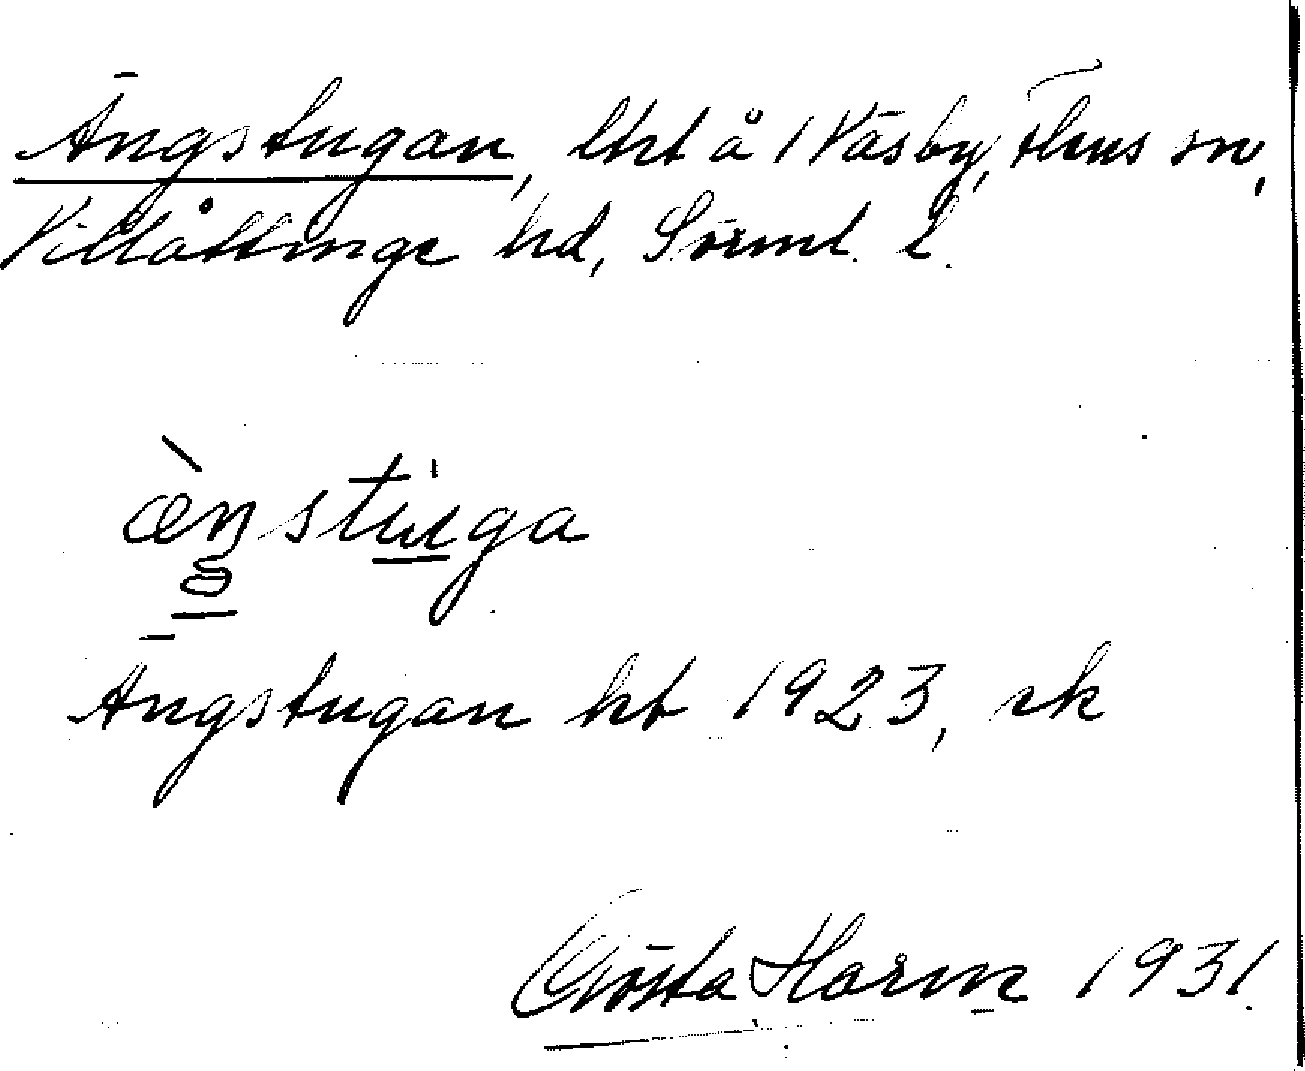 Ängstugan, lht å 1 Väsby, Flens sn,
Villåttinge hd, Sörml. l.
æ̀ŋstuga
Ängstugan kt 1923, sk
Gösta Harm 1931.